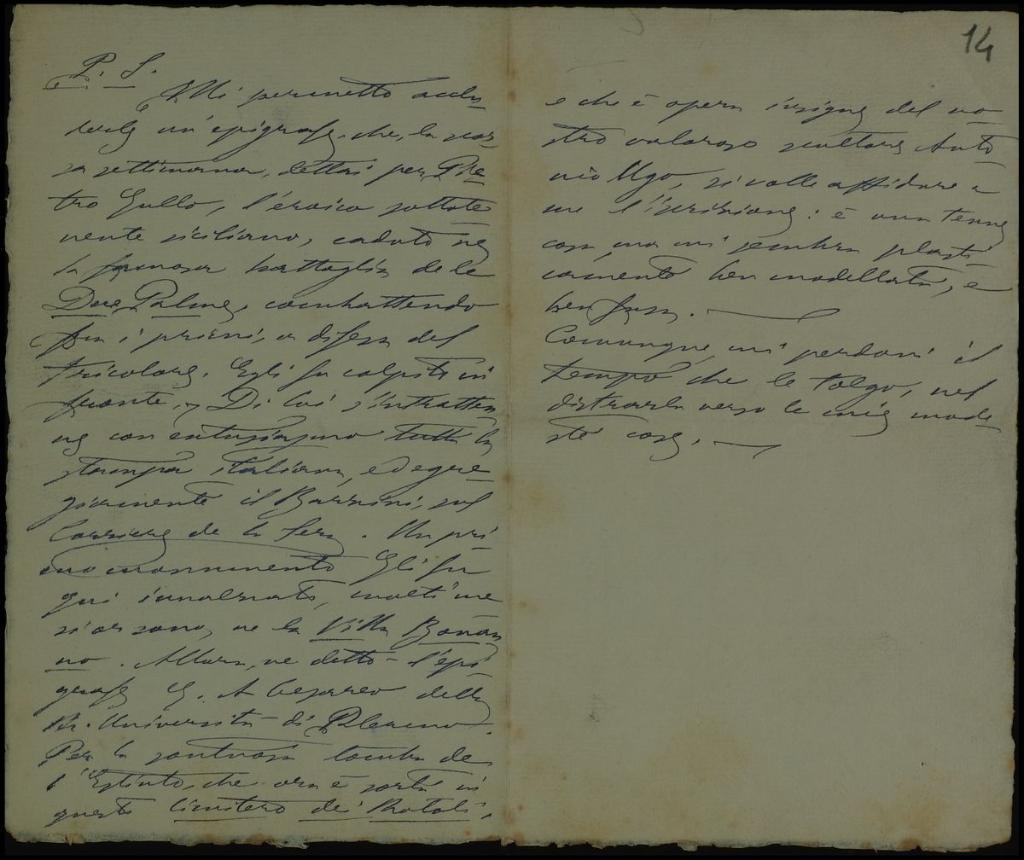 14
P. S.
Mi permetto acclu
derle un'epigrafe, che, la scor
sa settimana, dettai per Pie
tro Gullo, l'eroico sottote
nente siciliano, caduto ne
la famosa battaglia de le
Due Palme, combattendo
fra i primi, a difesa del
tricolore. Egli fu colpito in
fronte. Di lui s'intratten
ne con entusiasmo tutta la
stampa italiana, ed egre
giamente il Barzini, sul
Corriere de la Sera. Un pri
mo monumento Gli fu
qui innalzato, molti me
si or sono, ne la Villa Bonan
no. Allora, ne dettò l'epi
grafe G. A. Cesareo della
R. Università di Palermo.
Per la sontuosa tomba de
l'Estinto, che ora è sorta in
questo Cimitero dei Rotoli,
e che è opera insigne del no
stro valoroso scultore Anto
nio Ugo, si volle affidare a
me l'iscrizione: è una tenue
cosa, ma mi sembra plasti
camente ben modellata, e
ben fusa.
Comunque, mi perdoni il
tempo che le tolgo, nel
distrarla verso le mie mode
ste cose.